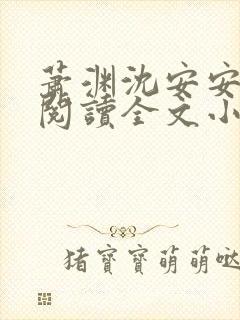 萧渊沈安安
阅读全文小
猪宝宝萌萌哒